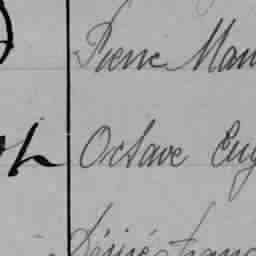 Pierre Mau
Octave Eug
Désiré Franc